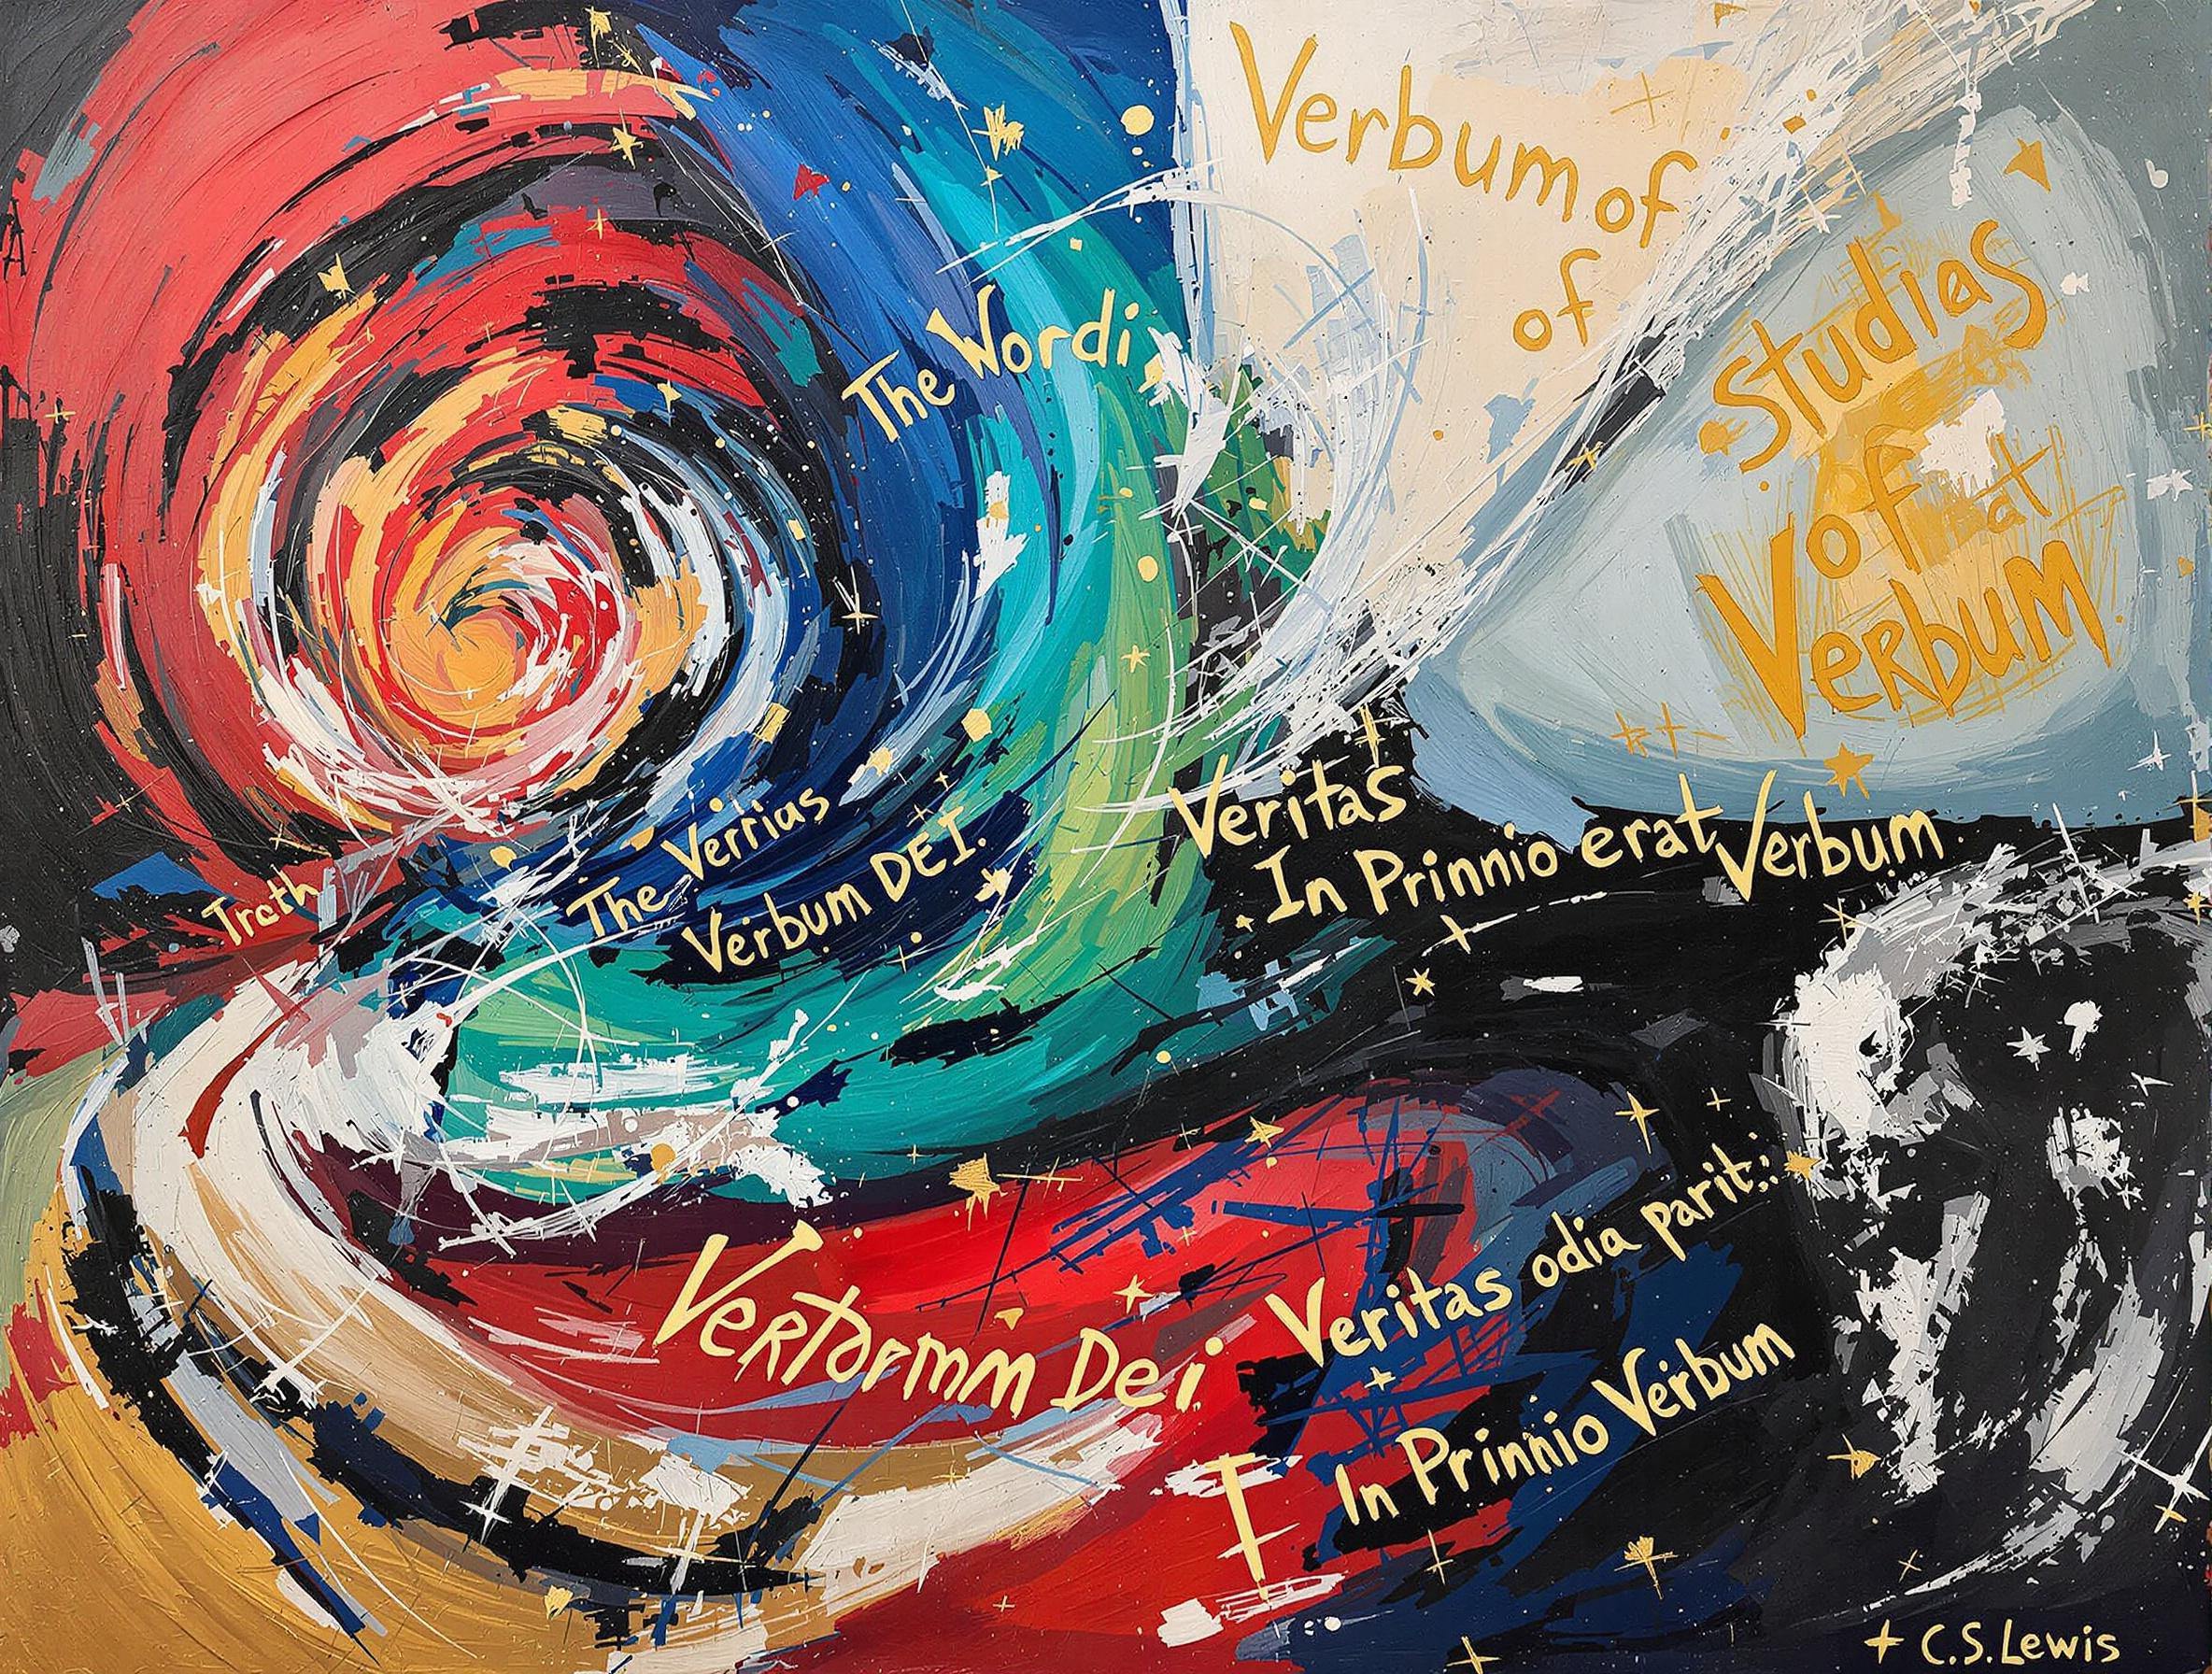 Verbum of
of
studias
of at
Verbum
The Wordi
Troth
The Verrias
Verbum DEI.
Veritas
In Prinnio erat Verbum.
Vertormm Dei
Veritas odia parit.:
I In Prinnio Verbum
+ C.S.Lewis